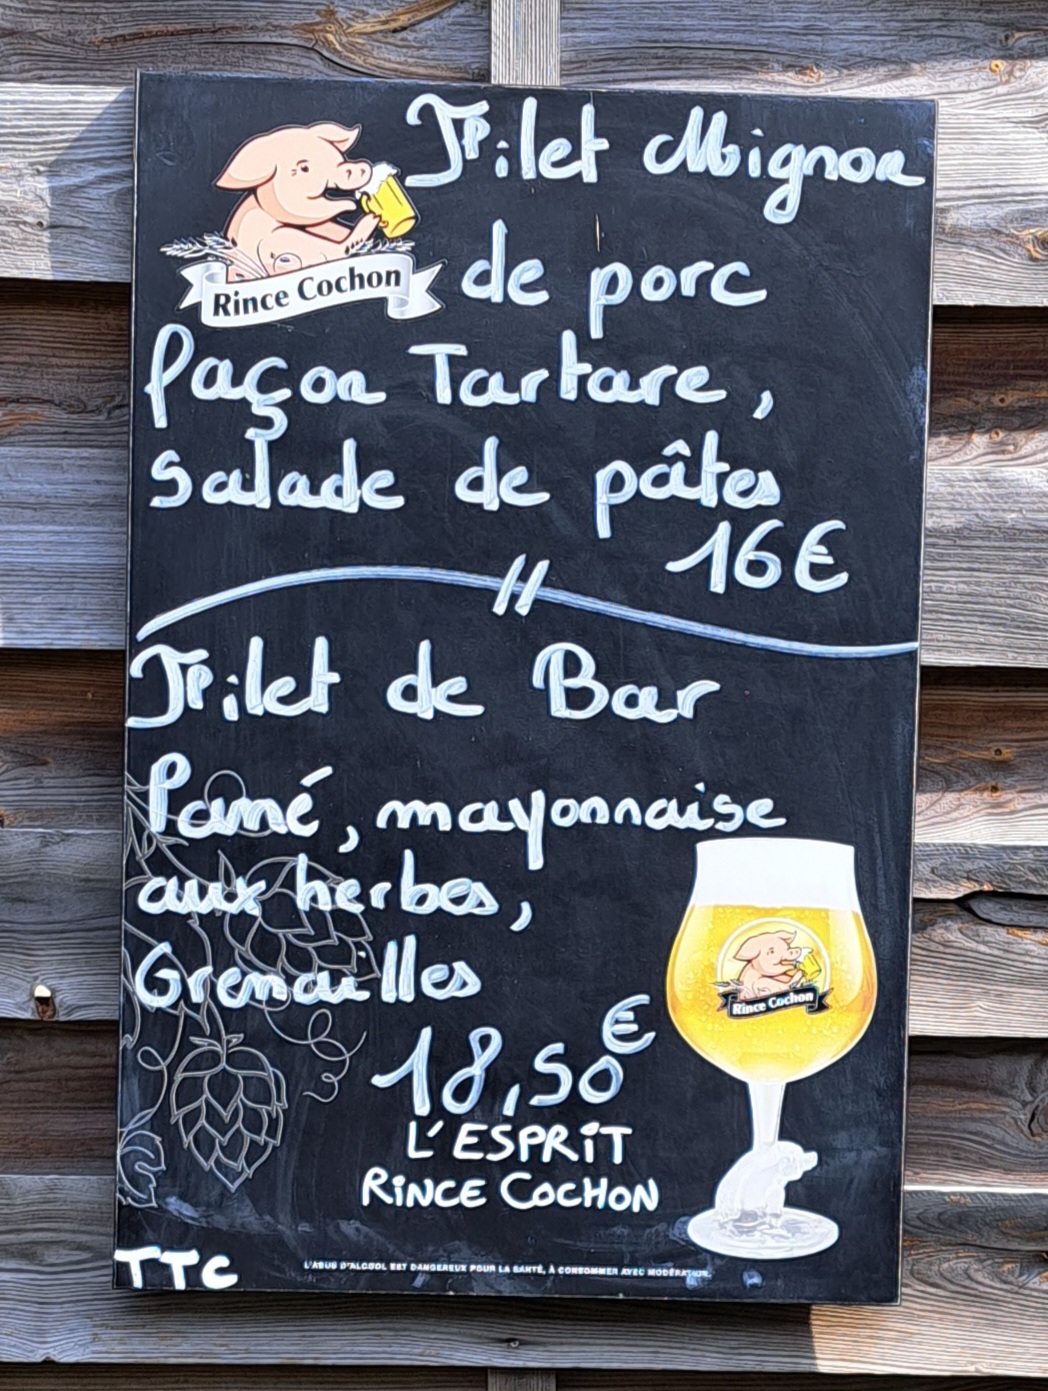 Filet Mignon
Rince Cochon
de porc
façon Tartare,
salade de pâtes
16€
//
Filet de Bar
Pamé, mayonnaise
aux herbes,
Grenailles
Rince Cochon
18,50€
L'ESPRiT
RiNCE COCHON
TTC
L'ABUS D'ALCOOL EST DANGEREUX POUR LA SANTÉ, À CONSOMMER AVEC MODÉRATION.